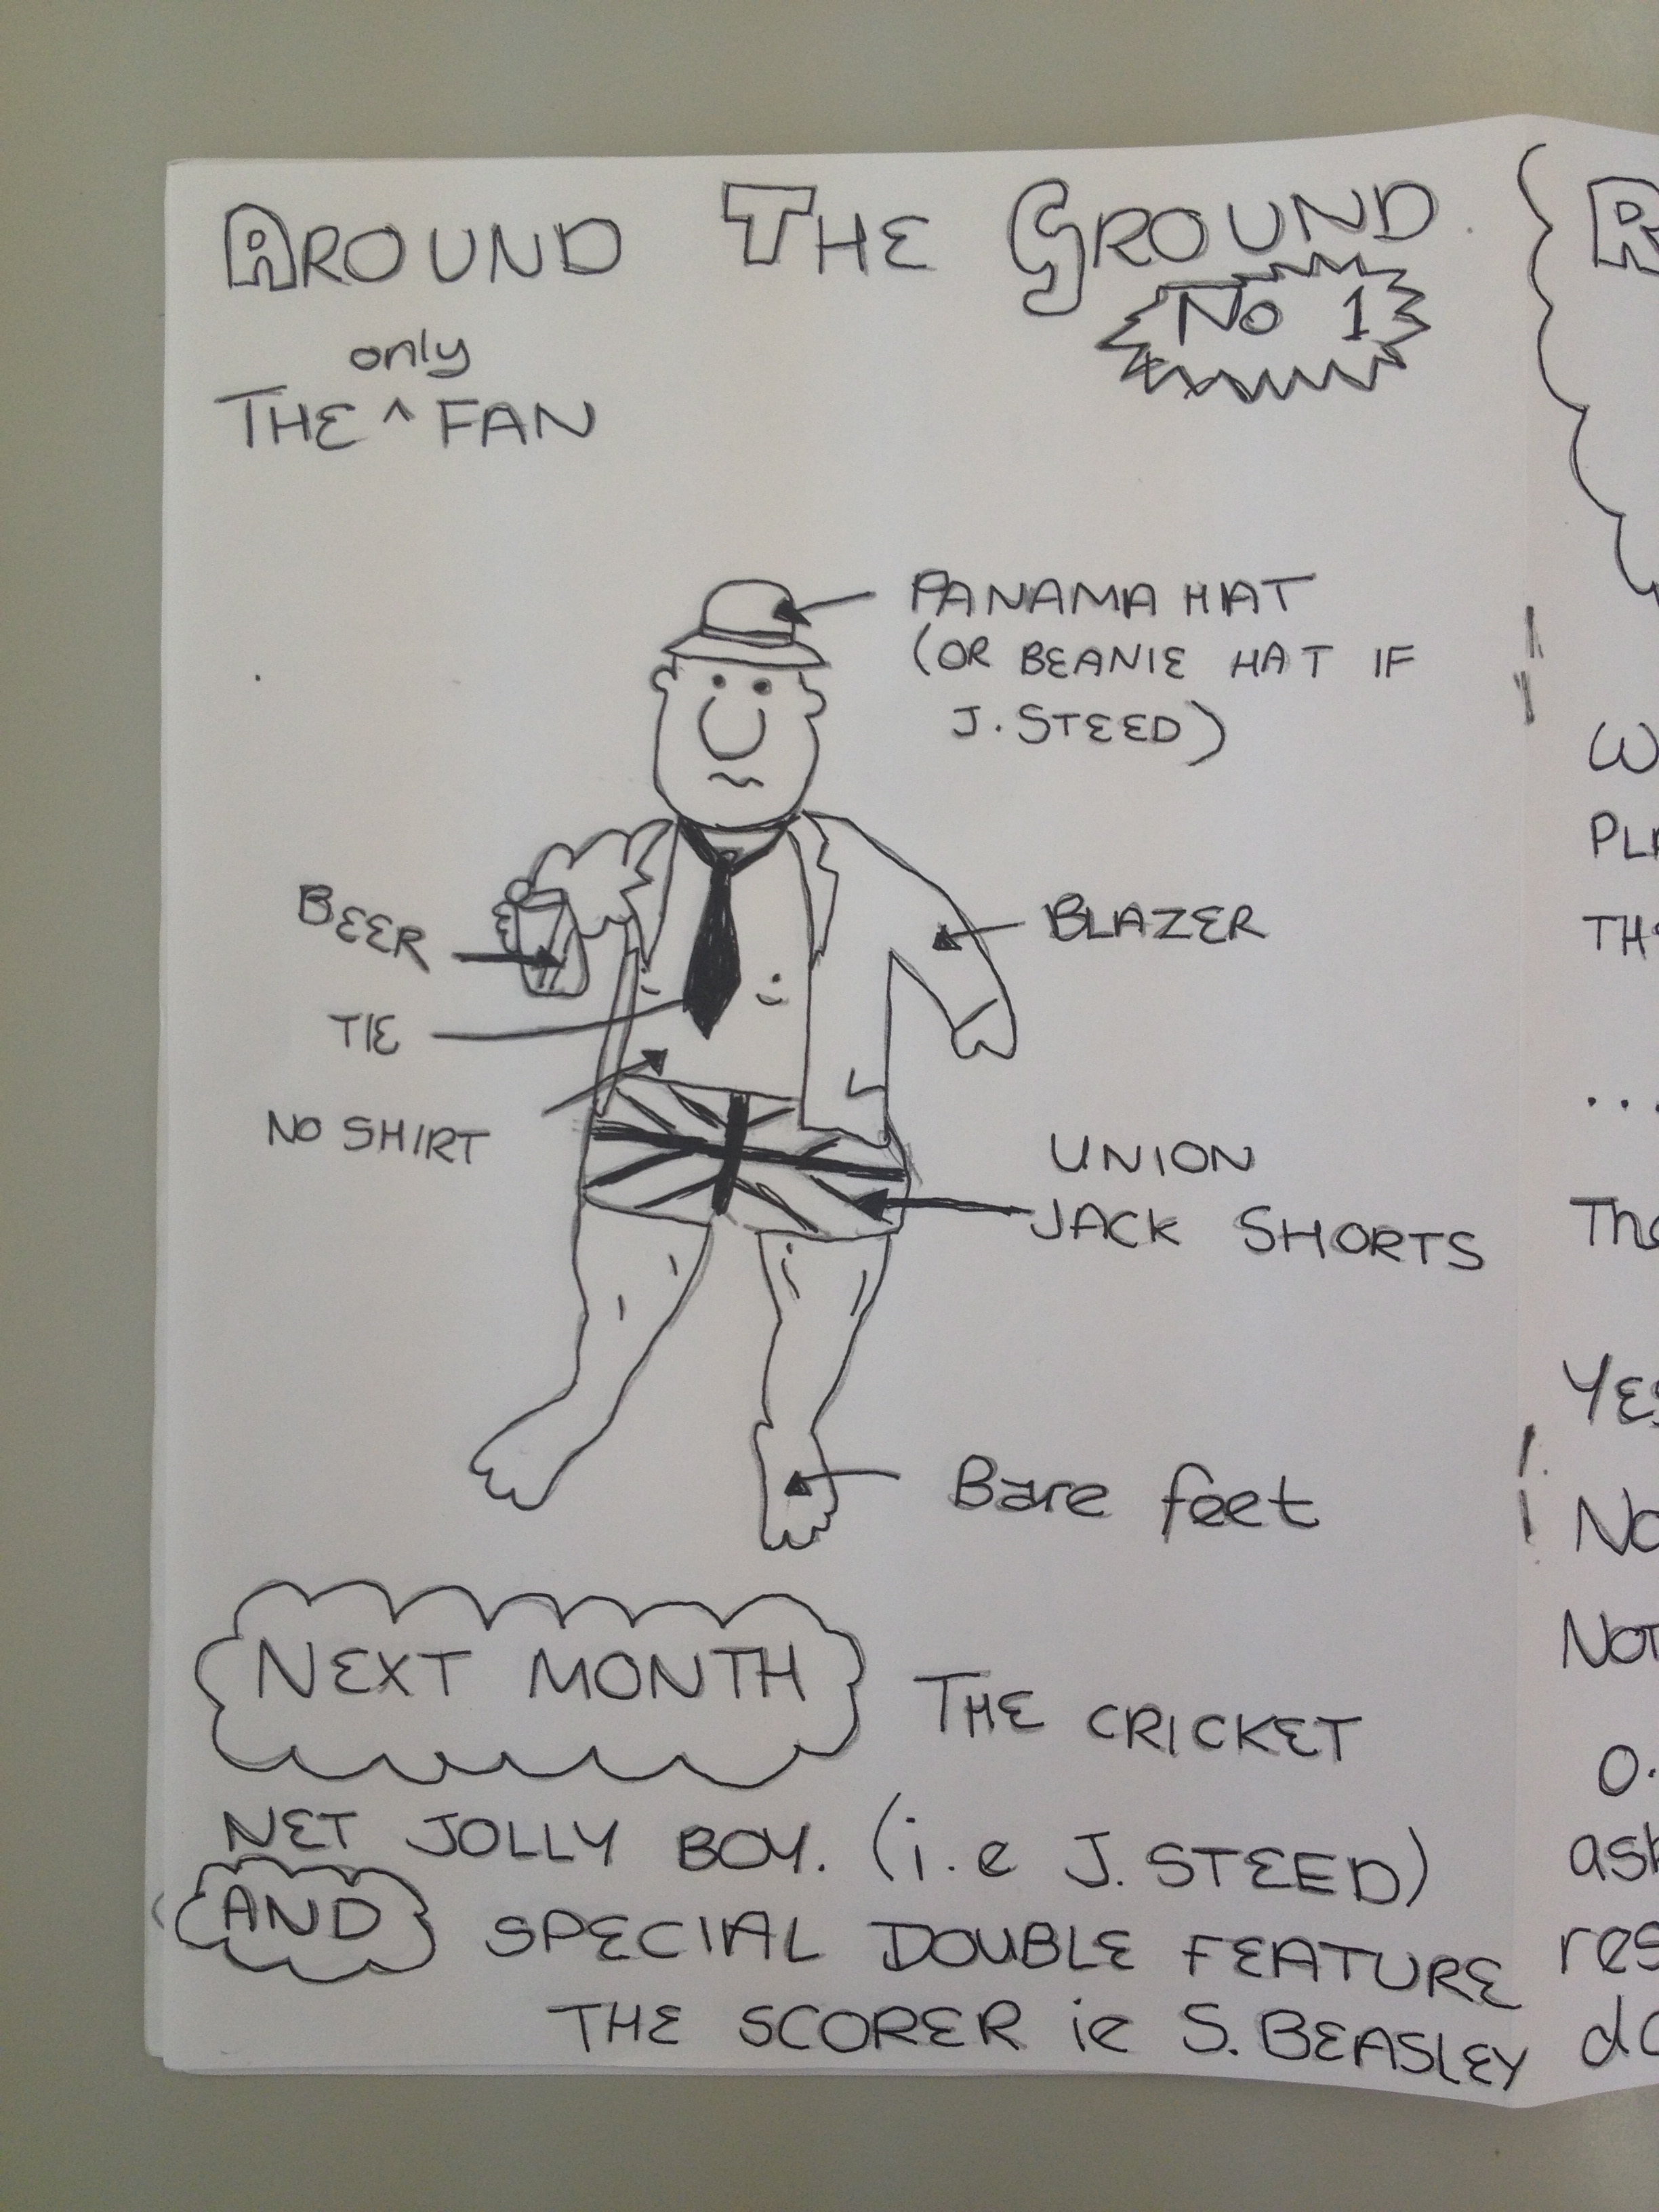 AROUND THE GROUND
No 1
only
THE ^ FAN
PANAMA HAT
(OR BEANIE HAT IF
J. STEED)
BEER
BLAZER
TIE
NO SHIRT
UNION
JACK SHORTS
Bare feet
NEXT MONTH THE CRICKET
NET JOLLY BOY. (i.e J. STEED)
AND SPECIAL DOUBLE FEATURE
THE SCORER ie S. BEASLEY